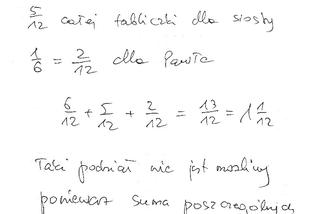 5/12 całej tabliczki dla siostry
1/6 = 2/12 dla Pawła
6/12 + 5/12 + 2/12 = 13/12 = 1 1/12
Taki podział nie jest możliwy
ponieważ suma poszczególnych